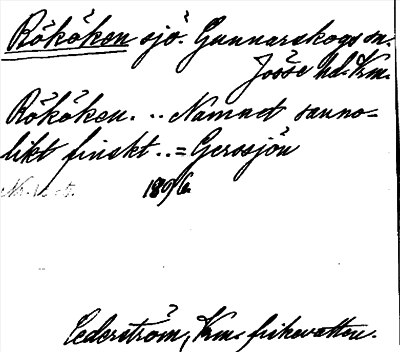 Rököken sjö. Gunnarskogs sn.
Jösse hd. Vrm.
Rököken. .. Namnet sanno-
likt finskt .. = Gerssjön
1896.
Cederström, Vrm. fiskevatten.